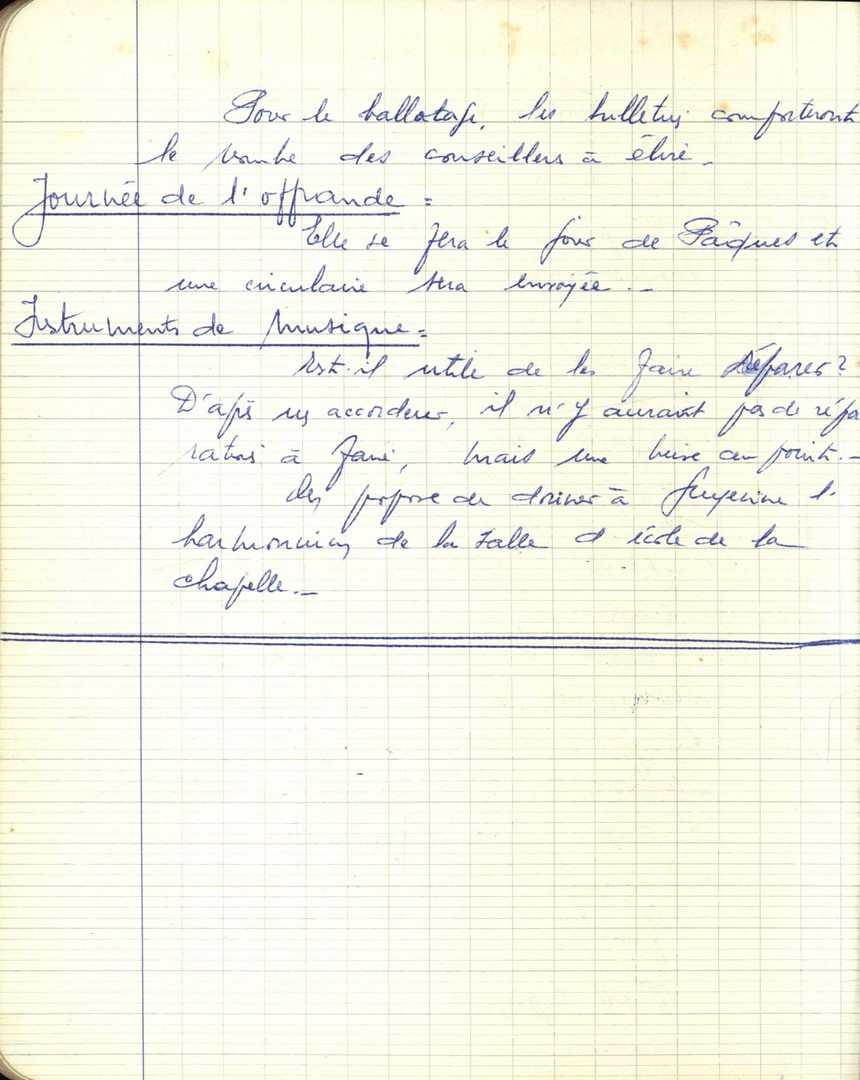 Pour le ballotage, les bulletins comporteront
le nombre des conseillers à élire.
Journée de l'offrande =
Elle se fera le jour de Pâques et
une circulaire sera envoyée.-
Instruments de musique =
Est-il utile de les faire réparer?
D'après un accordeur, il n'y aurait pas de répa
rations à faire, mais une mise au point.-
On propose de donner à l'
harmonium de la salle d'école de la
chapelle.-